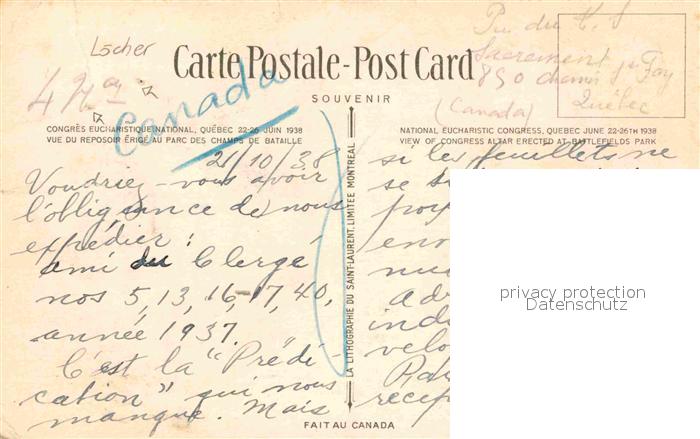 Löcher
Carte Postale-Post Card
SOUVENIR
Canada
CONGRÈS EUCHARISTIQUE NATIONAL, QUÉBEC 22-26 JUIN 1938
VUE DU REPOSOIR ÉRIGÉ AU PARC DES CHAMPS DE BATAILLE
NATIONAL EUCHARISTIC CONGRESS, QUEBEC JUNE 22-26TH 1938
VIEW OF CONGRESS ALTAR ERECTED AT BATTLEFIELDS PARK
Sacrement
850 chemin Ste Foy
Québec
(Canada)
21/10/38
Voudriez-vous avoir
l'obligeance de nous
expédier :
ami du Clergé
nos 5, 13, 16, 17, 40,
année 1937.
C'est la "Prédi-
cation" qui nous
manque. Mais
si les feuillets ne
se
LA LITHOGRAPHIE DU SAINT-LAURENT, LIMITEE MONTREAL
FAIT AU CANADA
privacy protection
Datenschutz